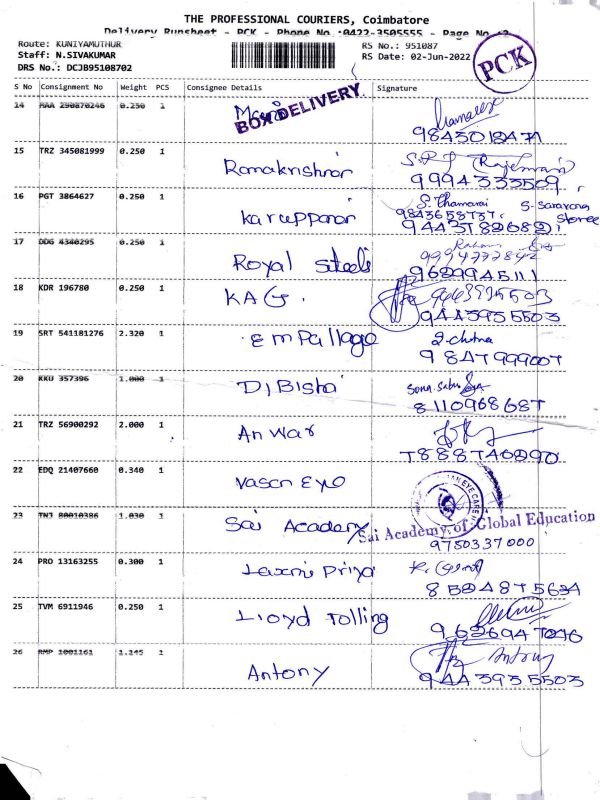 THE PROFESSIONAL COURIERS, Coimbatore
Delivery Runsheet - PCK - Phone No.:0422-3505555 - Page No.:2
Route: KUNIYAMUTHUR
RS No.: 951087
Staff: N.SIVAKUMAR
RS Date: 02-Jun-2022
DRS No.: DCJB95108702
PCK
S No Consignment No Weight PCS Consignee Details Signature
14 MAA 290870246 0.250 1
BOX DELIVERY
15 TRZ 345081999 0.250 1 Ramakrishnan
9994333509
16 PGT 3864627 0.250 1 Karuppanan S. Thamarai
S. Saravana
9443782682
17 DDG 4340295 0.250 1 Royal Steels
9994777842
9629945111
18 KDR 196780 0.250 1 KAG.
9443935503
19 SRT 541181276 2.320 1
9847999007
20 KKU 357396 1.000 1
8110968687
21 TRZ 56900292 2.000 1 Anwar
7888740290
22 EDQ 21407660 0.340 1 Vasan Eye
23 TNJ 80010386 1.030 1 Sai Academy
Sai Academy of Global Education
9750337000
24 PRO 13163255 0.300 1 Laxmi Priya
8524875634
25 TVM 6911946 0.250 1 Lloyd Tolling
26 RMP 1001161 1.145 1 Antony Antony
9443935503